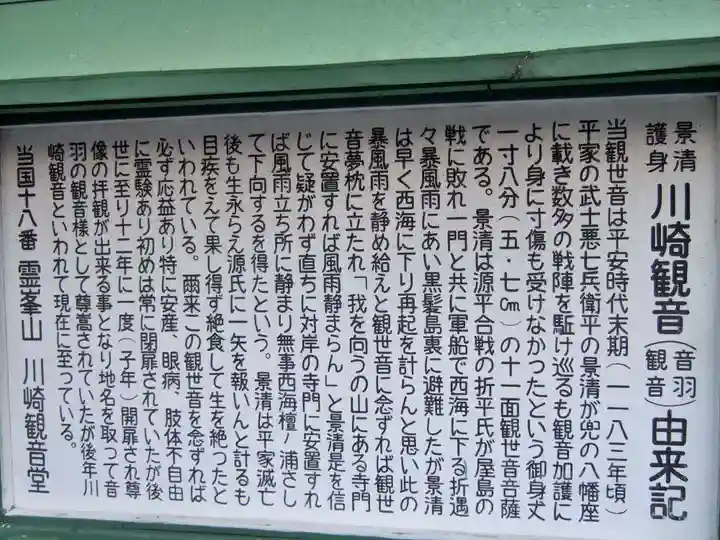 景清護身 川崎観音(音羽観音)由来記
当観世音は平安時代末期(一一八三年頃)
平家の武士悪七兵衛平の景清が兜の八幡座
に載き数多の戦陣を駈け巡るも観音加護に
より身に寸傷も受けなかったという御身丈
一寸八分(五・七㎝)の十一面観世音音薩
である。景清は源平合戦の折平氏が屋島の
戦に敗れ一門と共に軍船で西海に下る折遇
々暴風雨にあい黒髪島裏に避難したが景清
は早く西海に下り再起を計らんと思い此の
暴風雨を静め給えと観世音に念ずれば観世
音夢枕に立たれ「我を向うの山にある寺門
に安置すれば風雨静まらん」と景清是を信
じて疑がわず直ちに対岸の寺門に安置すれ
ば風雨立ち所に静まり無事西海檀ノ浦さし
て下向するを得たという。景清は平家滅亡
後も生永らえ源氏に一矢を報いんと計るも
目疾をえて果し得ず絶食して生を絶ったと
いわれている。爾来この観世音を念ずれば
必ず応益あり特に安産、眼病、肢体不自由
に霊験あり初めは常に閉扉されていたが後
世に至り十二年に一度(子年)開扉され尊
像の拝観が出来る事となり地名を取って音
羽の観音様として尊嵩されていたが後年川
崎観音といわれて現在に至っている。
当国十八番 霊峯山 川崎観音堂